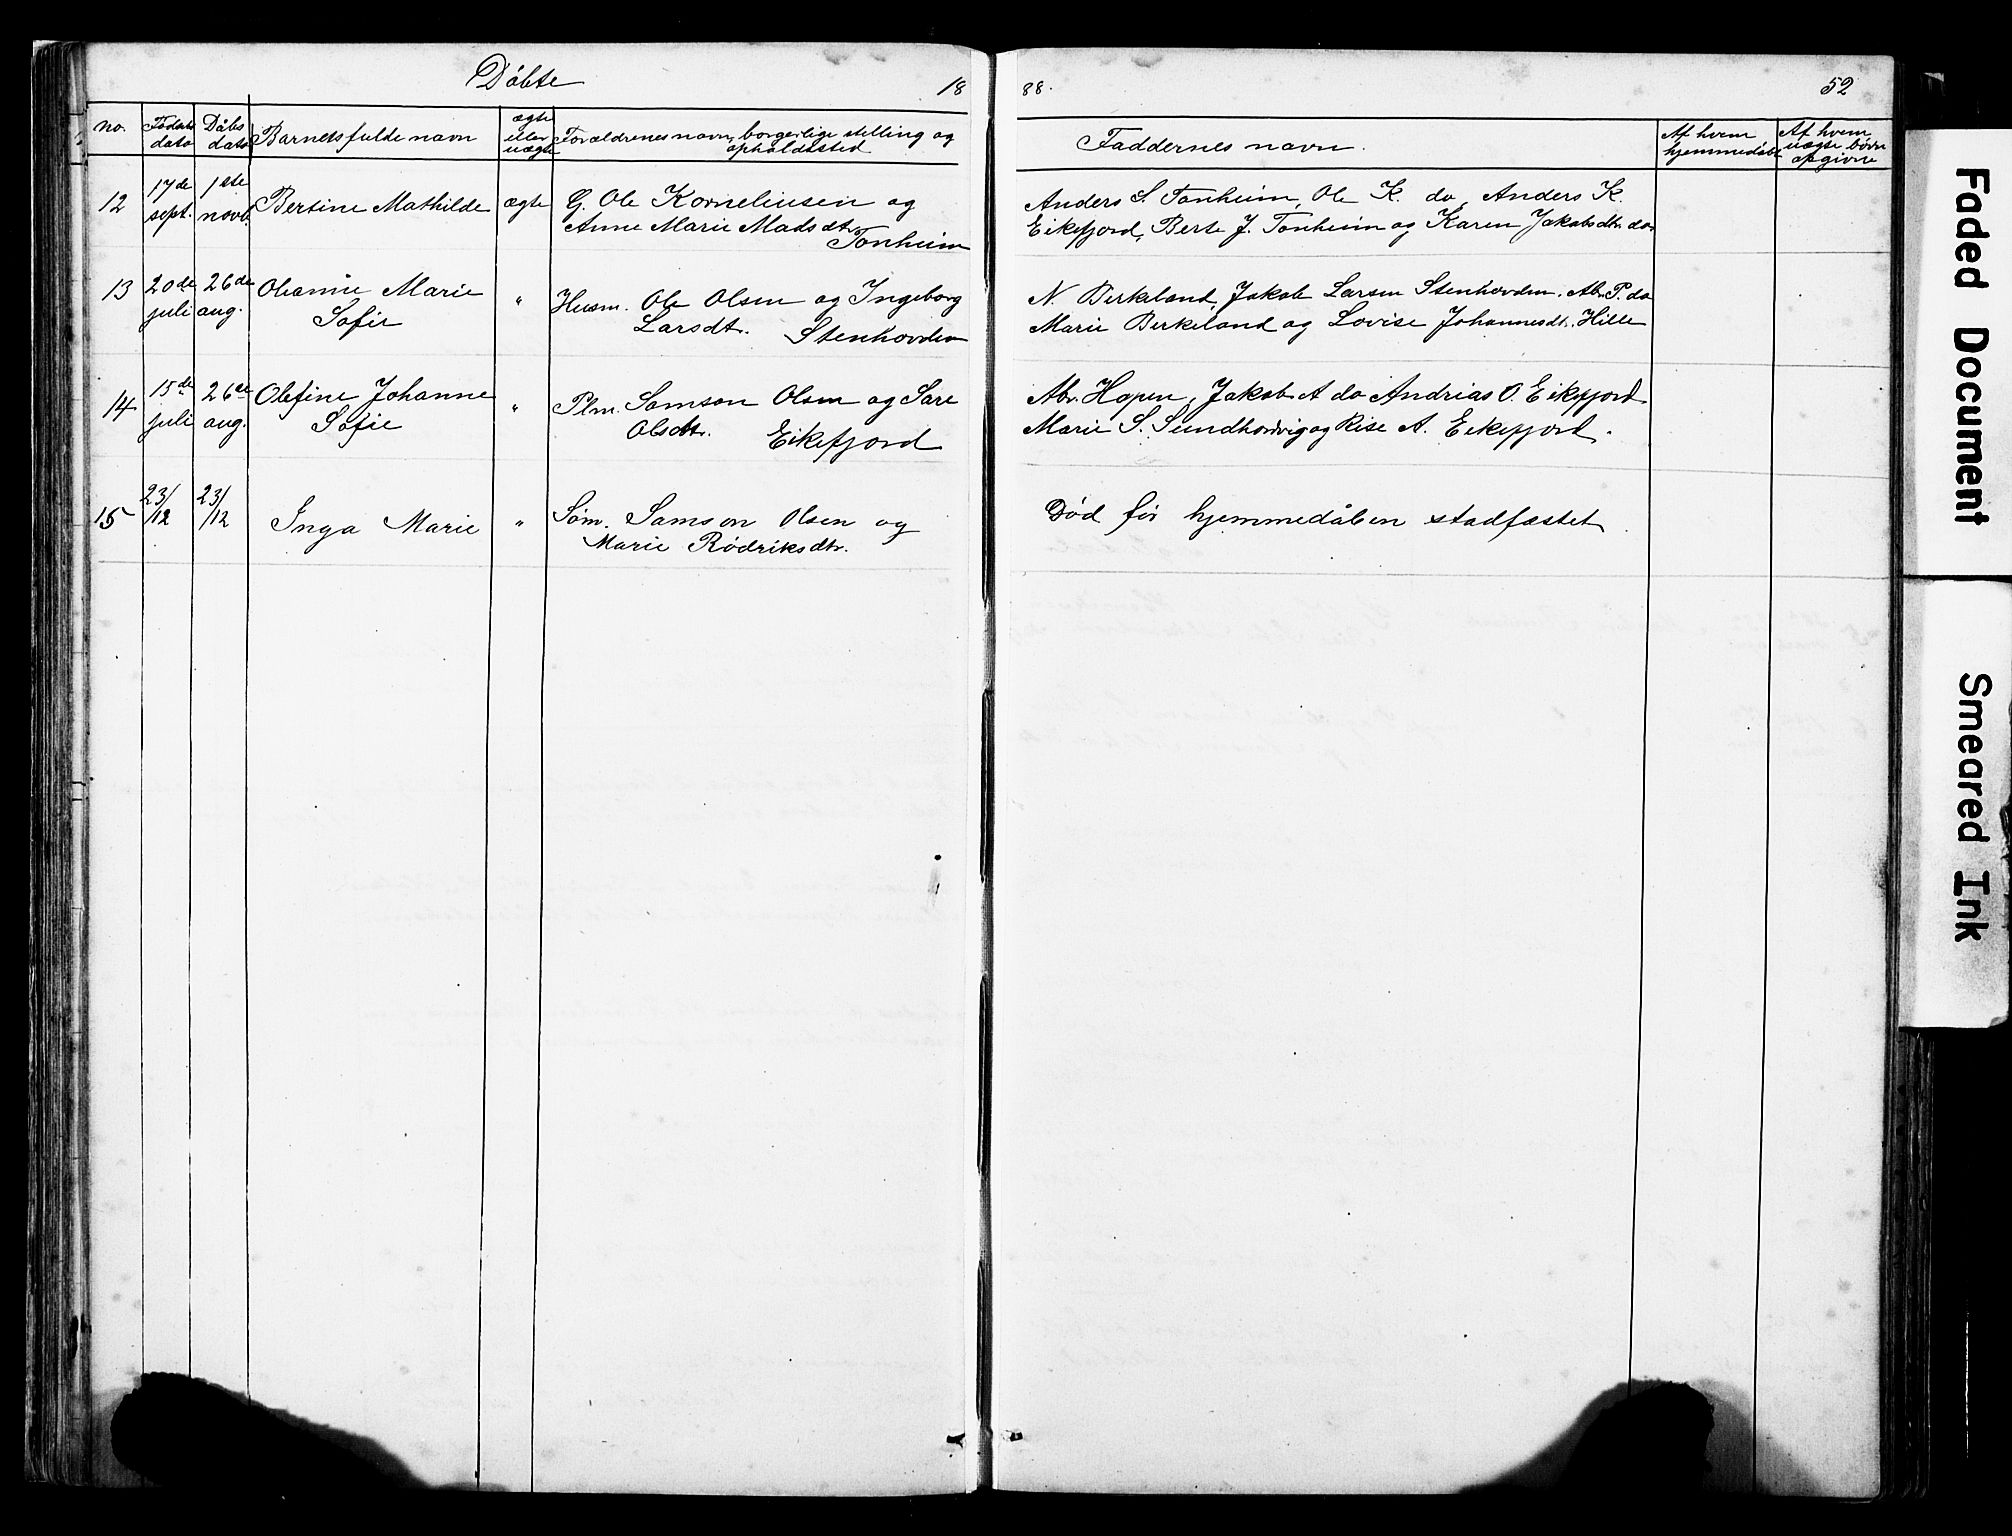 Döbte 18 88. 52
no. Födsels dato Dåbs dato Barnets fulde navn ægte eller uægte Forældrenes navn, borgerlige stilling og opholdssted Faddernes navn. Af hvem hjemmedåbt Af hvem uægte börn opgivne
12 17de sept. 1ste novb. Bertine Mathilde ægte G. Ole Korneliusen og
Anne Marie Madsdtr.
Tonheim
Anders S. Tonheim, Ole K. do, Anders K.
Eikefjord, Berte J. Tonheim og Karen Jakobsdtr. do
13 20de juli 26de aug. Oleanne Marie
Sofie
" Husm. Ole Olsen og Ingeborg
Larsdt. Stenhovden
N. Birkeland, Jakob Larsen Stenhovden, Abr. P. do
Marie Birkeland og Lovise Johannesdt. Hille
14 15de juli 26de aug. Olefine Johanne
Sofie
" Plm. Samson Olsen og Sare
Olsdtr. Eikefjord
Abr. Hopen, Jakob A do Andrias O. Eikefjord
Marie S. Sundhordvig og Rise A. Eikefjord.
15 23/12 23/12 Inga Marie " Söm. Samson Olsen og
Marie Rödriksdtr.
Död för hjemmedåben stadfæstet.
Faded Document
Smeared Ink